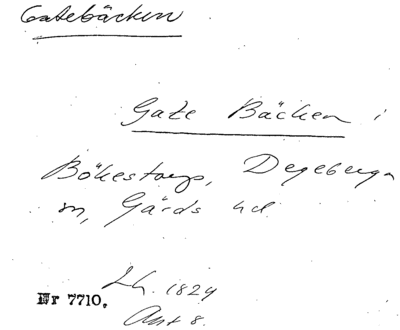 Gatebäcken
Gate Bäcken i
Bökestorp, Degeberga
sn, Gärds hd
Lh. 1824
Nr 7710.
Akt 8.